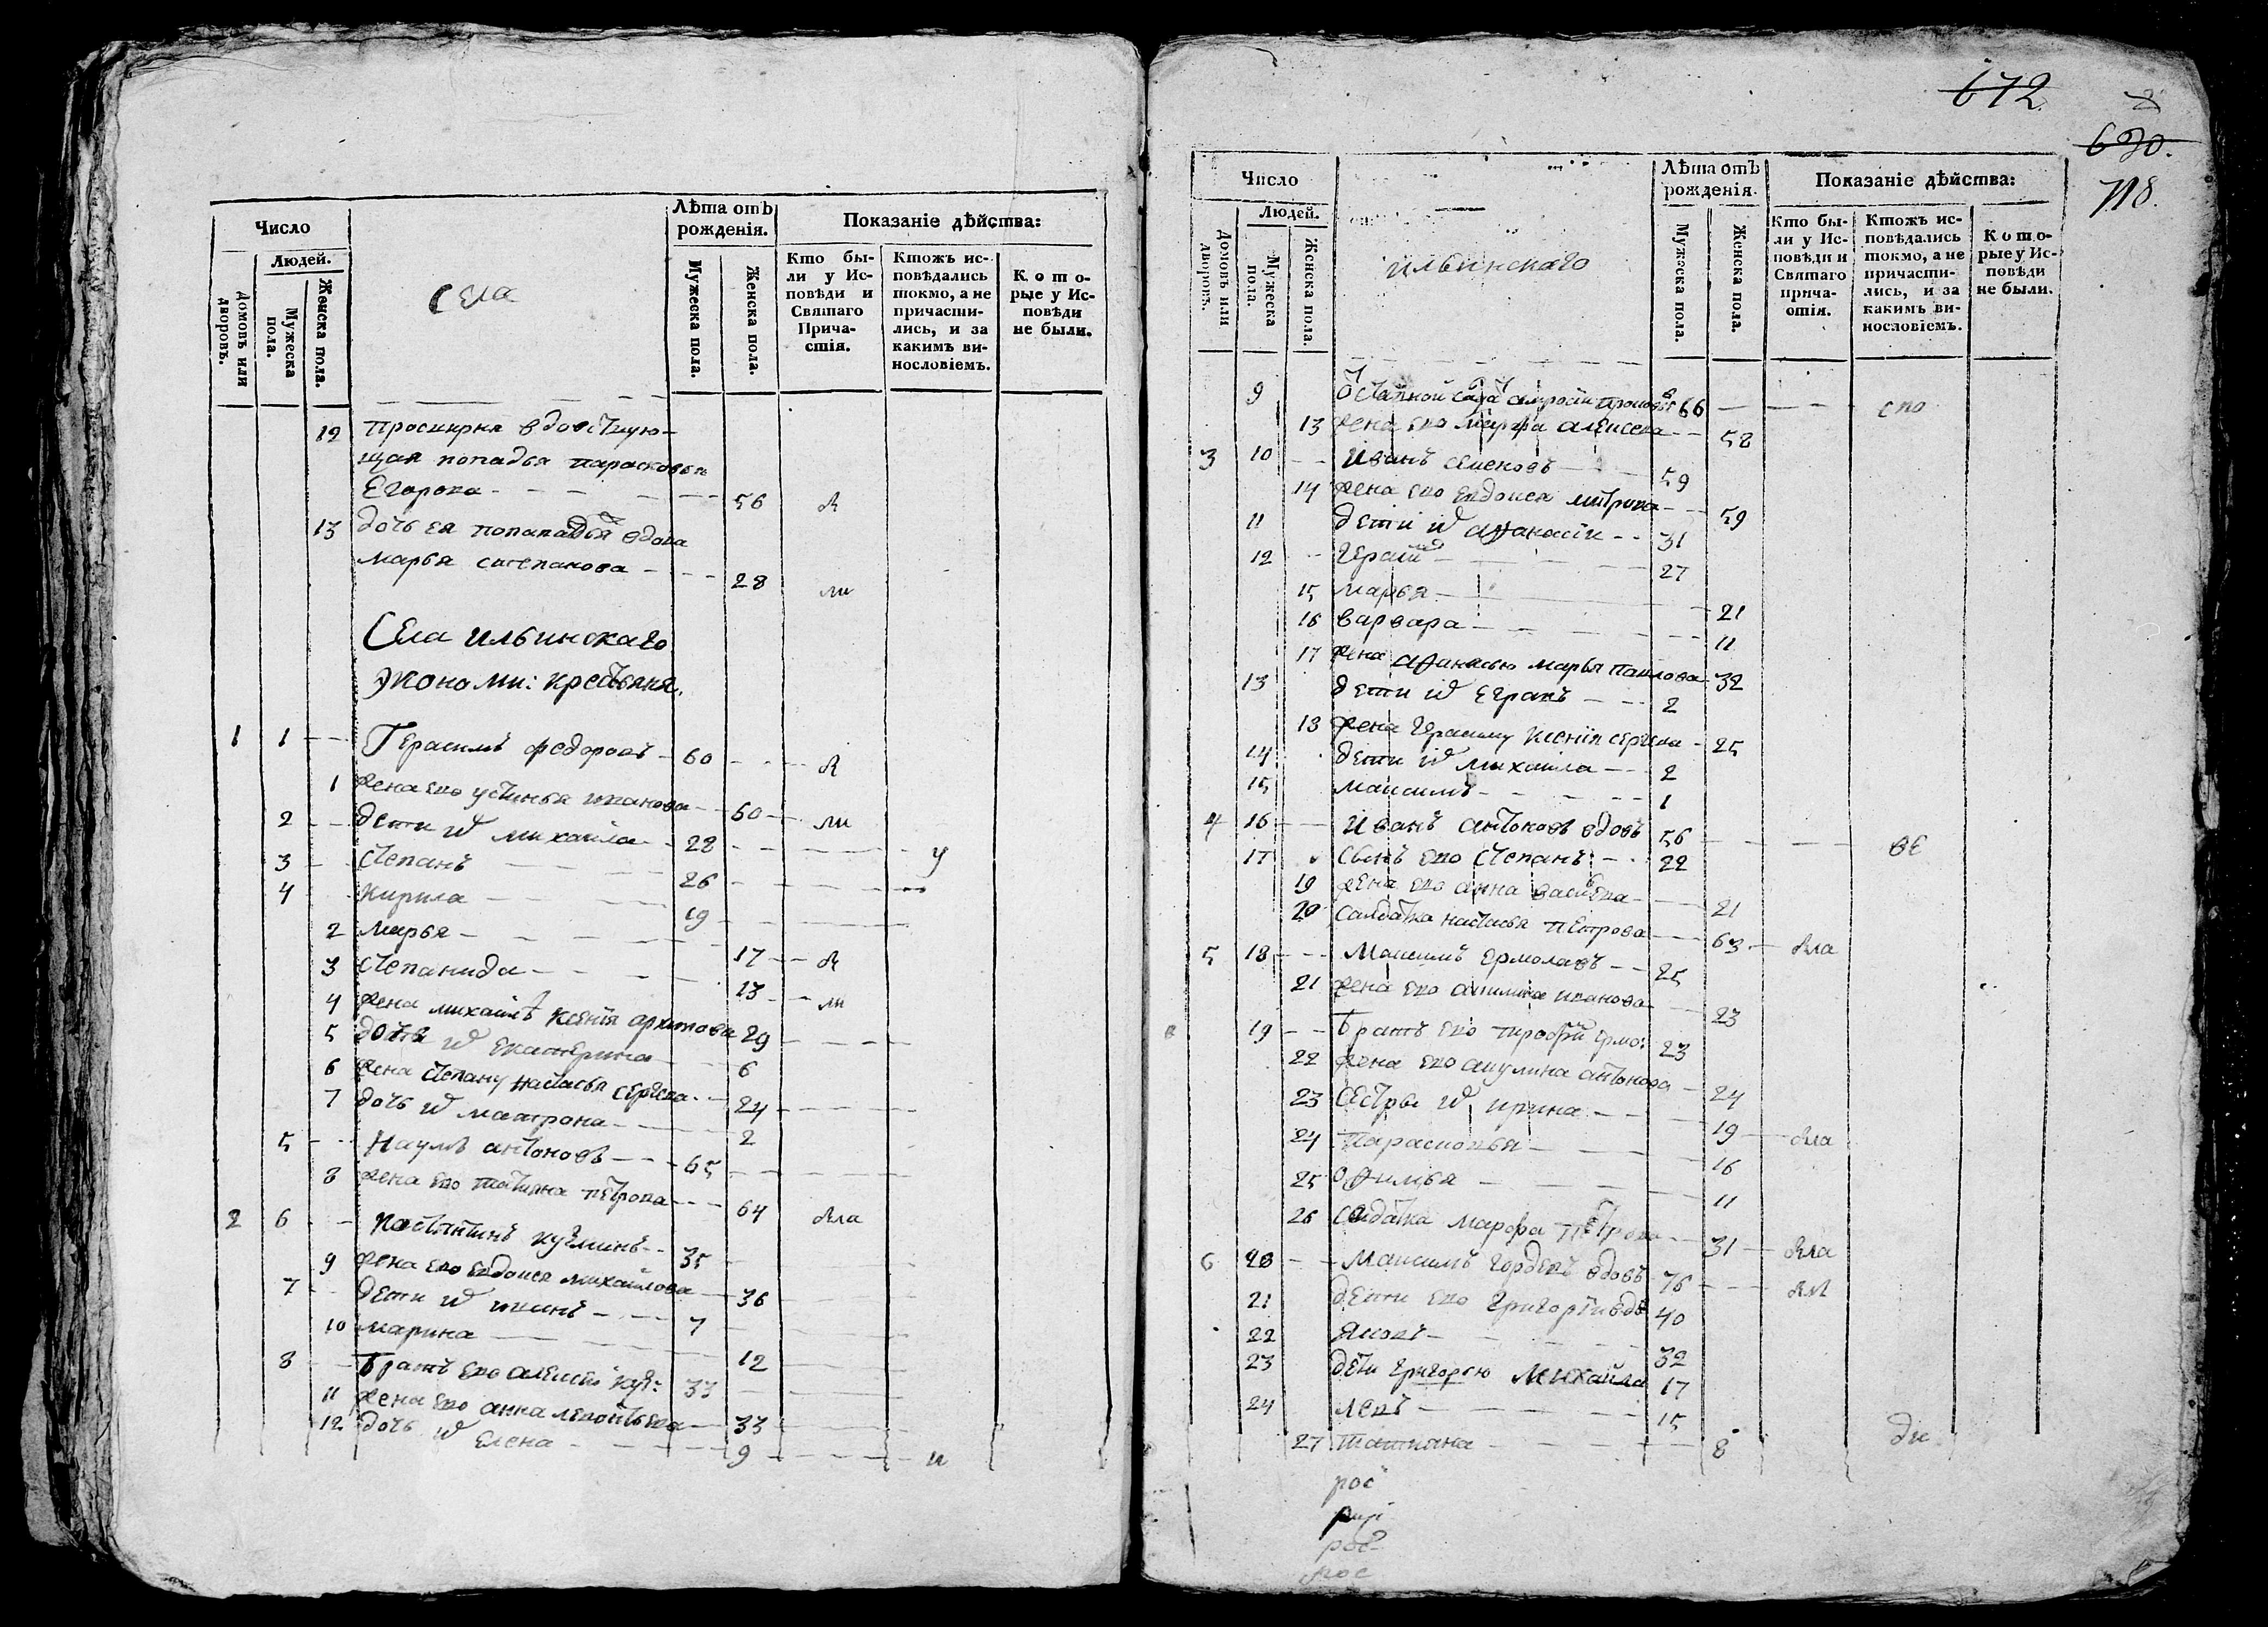 Число
Людей.
Домовъ или дворовъ.
Мужеска пола.
Женска пола.
Села
Лѣта отъ рожденія.
Мужеска пола.
Женска пола.
Показаніе дѣйства:
Кто бы-
ли у Ис-
повѣди и
Святаго
Прича-
стія.
Ктожъ ис-
повѣдались
токмо, а не
причасти-
лись, и за
какимъ ви-
нословіемъ.
Кото-
рые у Ис-
повѣди
не были.
12 просвирня вдовствую-
щая попадья парасковья
Егорова 56
13 дочь ея попападья вдова
марья степанова 28 ли
Села ильинскаго
экономи: крестьяня.
1 1 Герасимъ федоровъ 60
1 жена ево устинья иванова 60 ли
2 дети михаила 28 у
3 степанъ 26
4 кирила 19
2 марья 17
3 степанида 13 ли
4 жена михаилѣ ксенія архипова 29
5 дочь екатерина 6
6 жена степану настасья сергева 24
7 дочь матрона 2
5 Наумъ антоновъ 65
8 жена ево татьяна петрова 64 яла
2 6 костянтинъ кузминъ 35
9 жена ево евдокея михаилова 36
7 дети 7
10 марина 12
8 Братъ ево алексей куз: 33
11 жена ево анна леонтьева 33
12 дочь елена 9 и
672
630.
718.
Число
Людей.
Домовъ или дворовъ.
Мужеска пола.
Женска пола.
ильинскаго
Лѣта отъ рожденія.
Мужеска пола.
Женска пола.
Показаніе дѣйства:
Кто бы-
ли у Ис-
повѣди и
Святаго
прича-
стія.
Ктожъ ис-
повѣдались
токмо, а не
причасти-
лись, и за
какимъ ви-
нословіемъ.
Кото-
рые у Ис-
повѣди
не были.
9 66 спо
13 жена ево марфа алексева 58
3 10 Иванъ семеновъ 59
14 жена ево евдокея митрова 59
11 дети афанасіи 31
12 Герасим 27
15 марья 21
16 варвара 11
17 жена афанасью марья павлова 32
13 дети егранъ 2
18 жена герасиму ксенія сергева 25
14 дети михаила 2
15 максимъ 1
4 16 Иванъ антоновъ вдовъ 56 ве
17 сынъ ево степанъ 22
19 жена ево анна васильева 21
20 салдатка настасья петрова 63 яла
5 18 Максимъ ермолавъ 25
21 жена ево акилина иванова 23
19 братъ ево трофи ермо: 23
22 жена ево акулина антонова 24
23 сестры ирина 19 яла
24 парасковья 16
25 офимья 11
26 салдатка марфа петрова 31 яла
6 20 Максимъ гордевъ вдовъ 76
21 дети ево григоріи вдв 40
22 Яковъ 32
23 дѣти григорью михаила 17
24 левъ 15
27 татиана 8 ди
рос
рос
рос